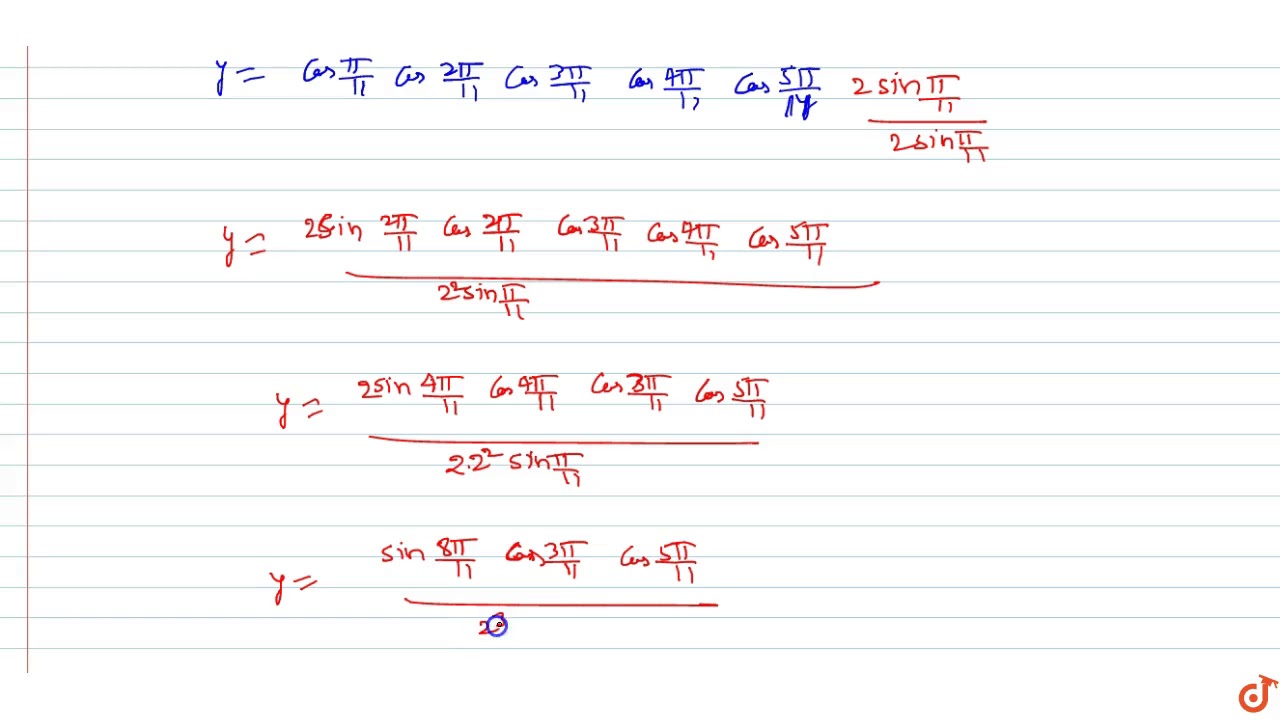 y = cos π/11 cos 2π/11 cos 3π/11 cos 4π/11 cos 5π/11 2 sin π/11 / 2 sin π/11
y = 2 sin 2π/11 cos 2π/11 cos 3π/11 cos 4π/11 cos 5π/11 / 2² sin π/11
y = 2 sin 4π/11 cos 4π/11 cos 3π/11 cos 5π/11 / 2·2² sin π/11
y = sin 8π/11 cos 3π/11 cos 5π/11 / 2³